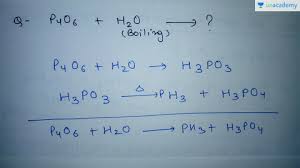 unacademy
Q- P₄O₆ + H₂O ⟶ ?
(Boiling)
P₄O₆ + H₂O ⟶ H₃PO₃
H₃PO₃ —Δ→ PH₃ + H₃PO₄
P₄O₆ + H₂O ⟶ PH₃ + H₃PO₄